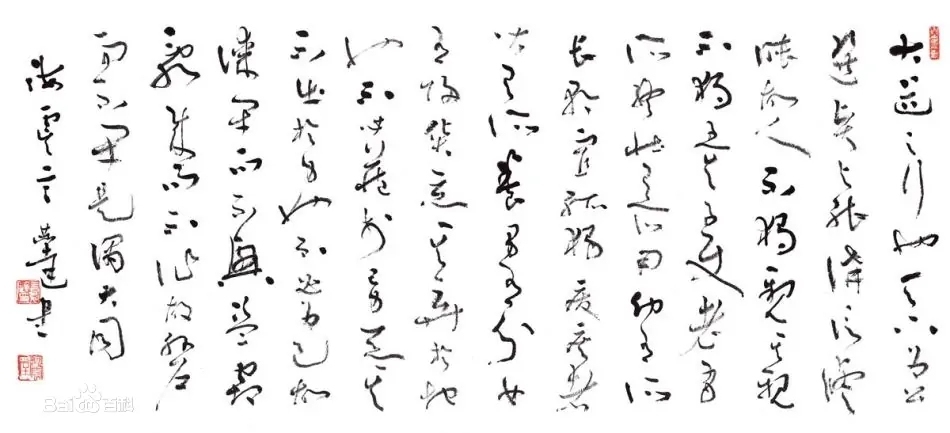 大道之行也天下为公
選賢与能講信修
睦故人不獨親其親
不獨子其子使老有
所終壮有所用幼有所
長矜寡孤獨廢疾者
皆有所養男有分女
有歸货恶其棄於地
也不必藏於己力恶其
不出於身也不必为己故
謀閉而不興盗竊
亂賊而不作故外户
而不閉是謂大同
书
Bai百科